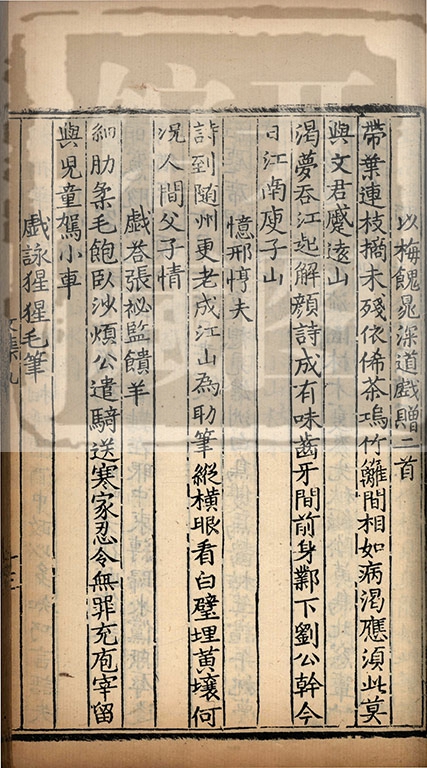 以梅餽晁深道戲贈二首
帶葉連枝摘未殘依俙茶塢竹籬間相如病渴應須此莫
與文君蹙遠山
渴夢吞江起解顔詩成有味齒牙間前身鄴下劉公幹今
日江南庾子山
憶邢惇夫
詩到隨州更老成江山為助筆縱橫眼看白璧埋黃壤何
况人間父子情
戯荅張祕監饋羊
細肋柔毛飽臥沙煩公遣騎送寒家忍令無罪充庖宰留
與兒童駕小車
戯詠猩猩毛筆
文集九
十三